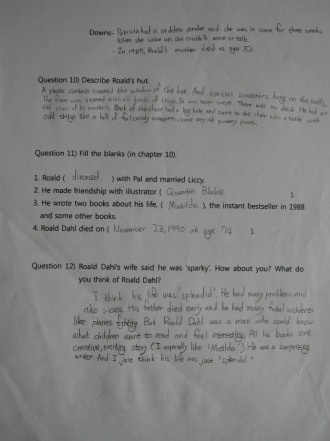 Downs- Patricia had a sudden stroke and she was in coma for three weeks
When she woke up she couldn't move or talk.
- In 1985, Roald's mother died at age 82.
Question 10) Describe Roald's hut.
A plastic curtain covered the window of the hut. And various souvenirs hung on the walls.
The floor was covered with all kinds of things. It was never clean. There was no desk. He had an
old chair of his mother's. Back of the chair had a big hole and next to the chair was a table with
odd things like a ball of foil candy wrappers,
Question 11) Fill the blanks (in chapter 10).
1. Roald ( divorced ) with Pal and married Liccy.
2. He made friendship with illustrator ( Quentin Blake ).
3. He wrote two books about his life, ( Matilda ), the instant bestseller in 1988
and some other books.
4. Roald Dahl died on ( November 23, 1990 at age 74 ).
Question 12) Roald Dahl's wife said he was 'sparky'. How about you? What do
you think of Roald Dahl?
I think his life was 'splendid'. He had many problems and
also His father died early and he had many fatal accidents
like planes fighting But Roald Dahl was a man who could know
what children want to read and feel interesting. All his books are
creative, exciting story (I especially like 'Matilda') He was a surprising
writer. And I just think his life was just 'splendid.'